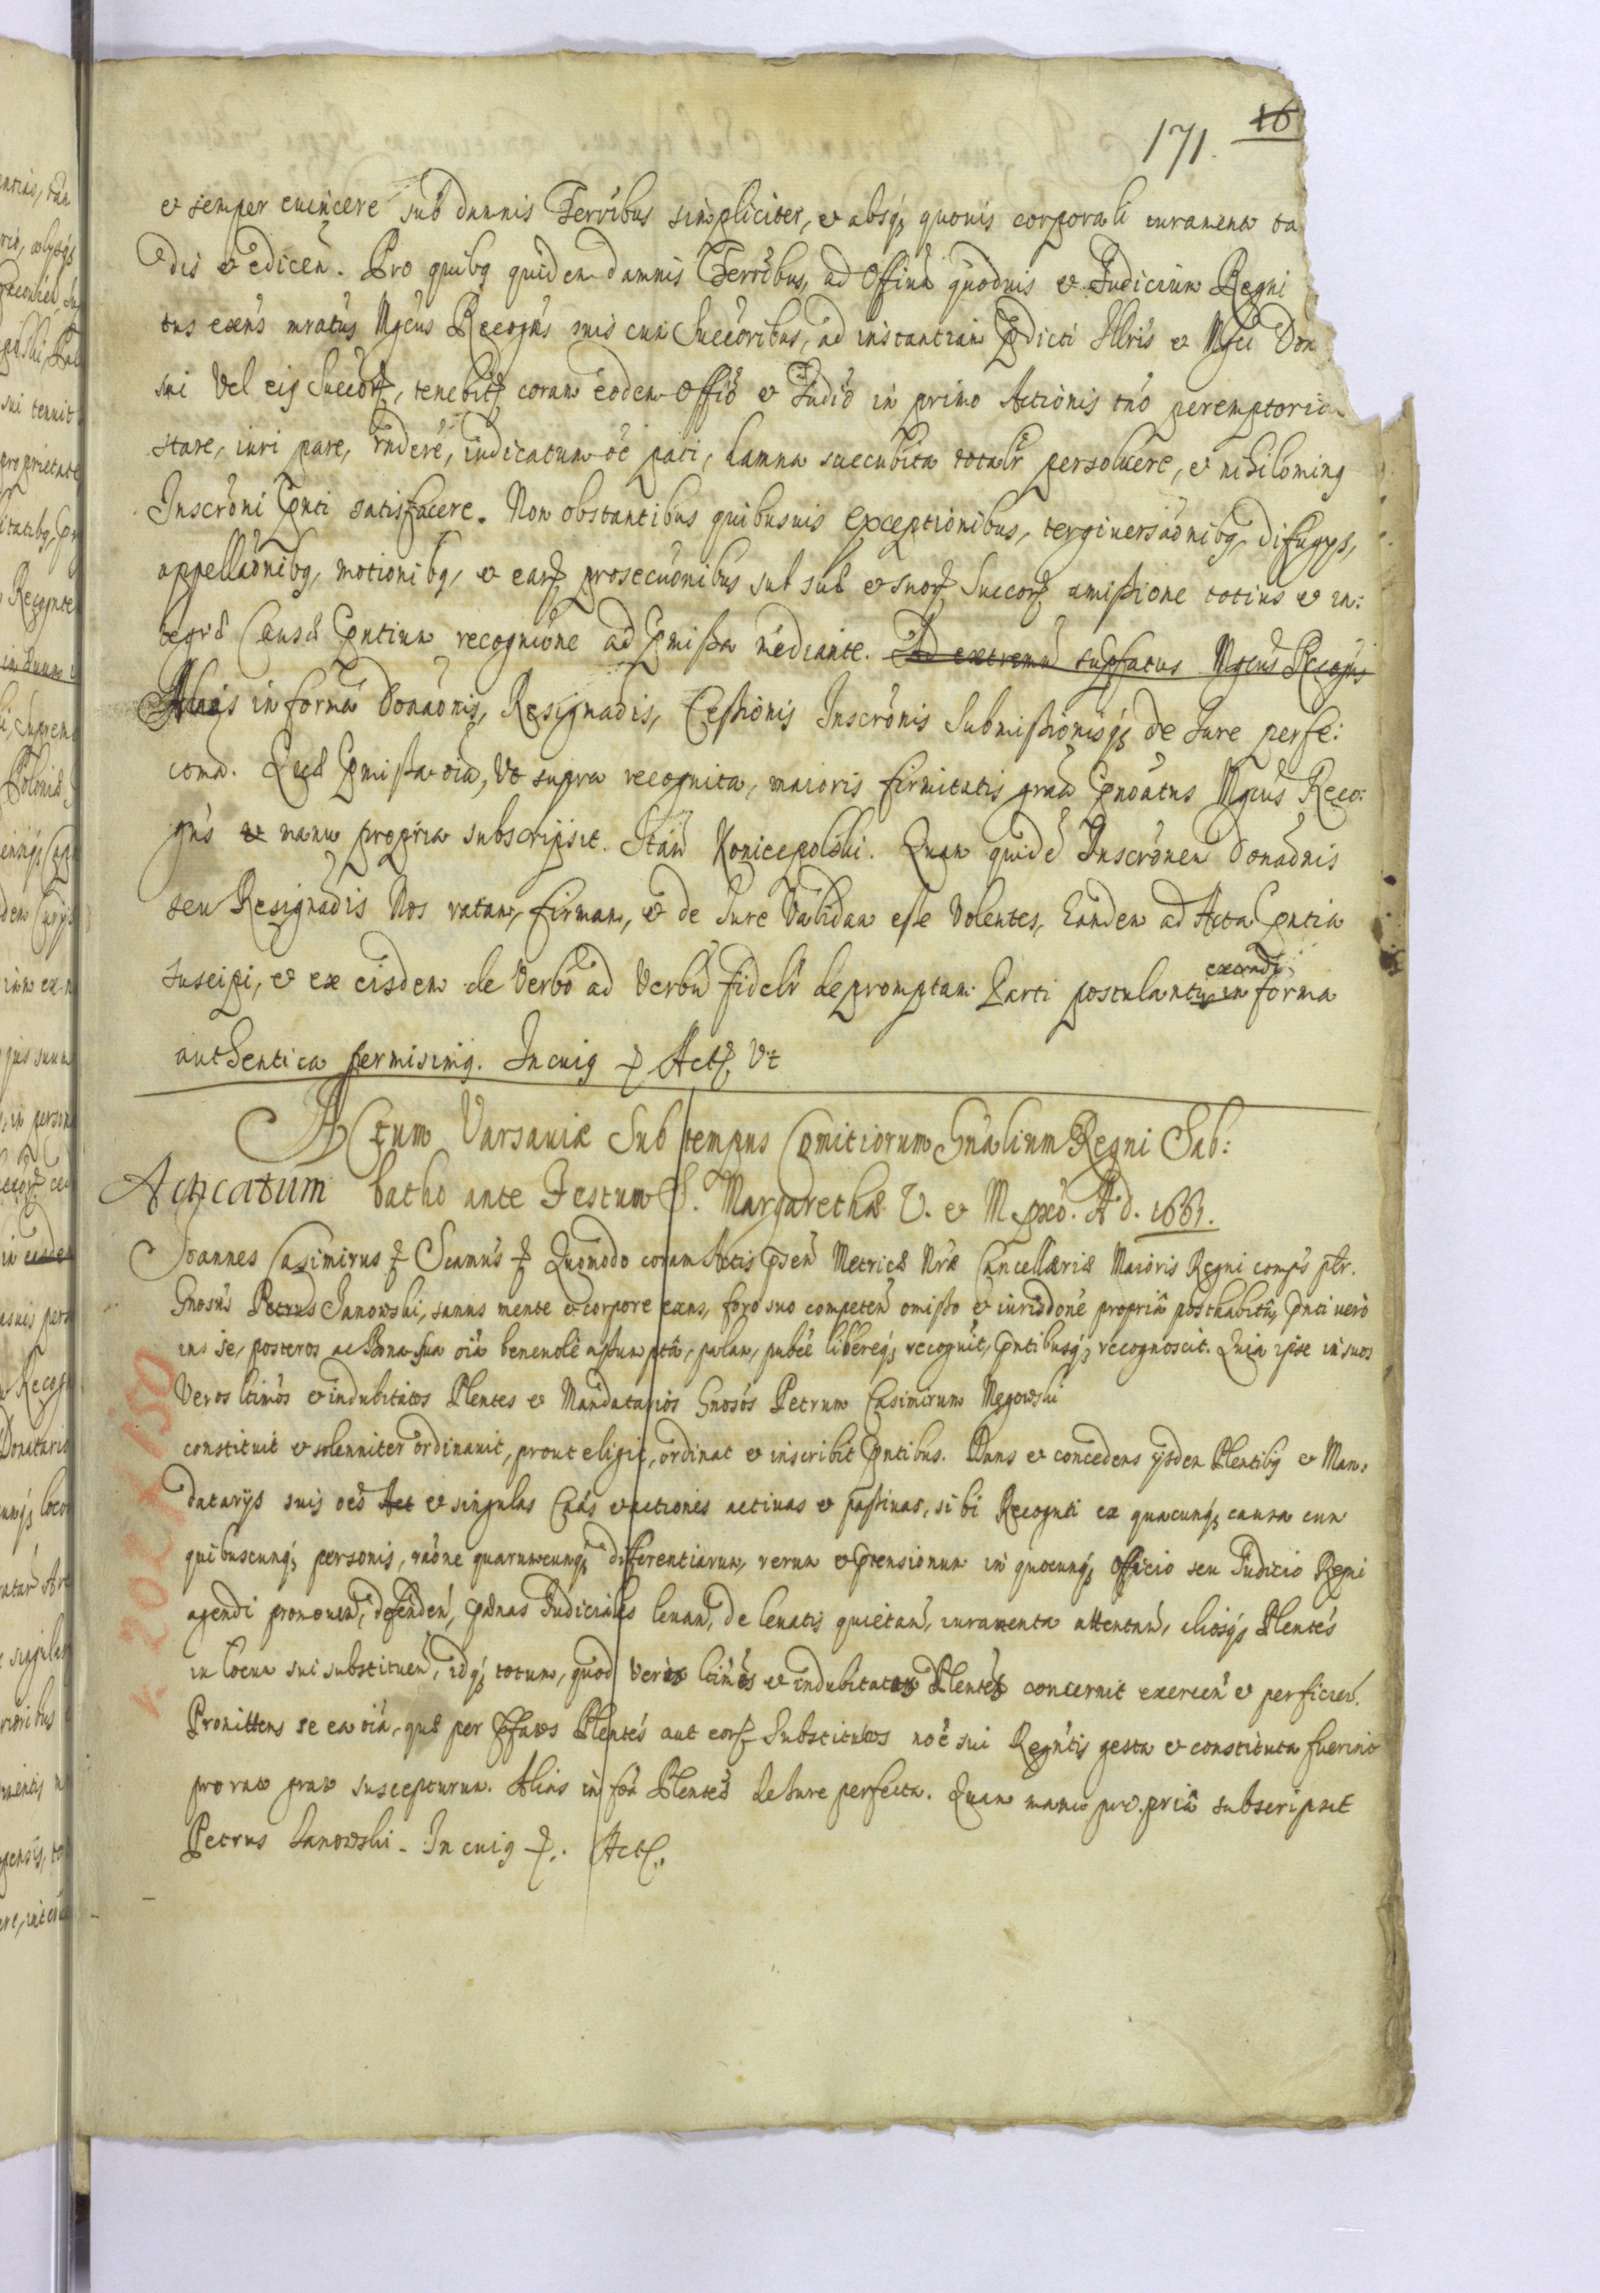 171. 16
et semper euincere sub damnis Terribus simpliciter, et absq; quouis corporali iuramento
dis et edicen. Pro quibq quidem damnis Terribus, ad Offium quoduis et Judicium Regni
tus exns mratus Mgcus Recogns suis cum Succoribus, ad instantiam pdicti Illris et Mgci Don
sui Vel eiq Succor, tenebitr coram eodem Offio et Judio in primo Actionis tno peremptorio
stare, iuri pare, rndere, iudicatum pati, damna succubita totalr persoluere, et nihilominq
Inscroni pnti satisfacere. Non obstantibus quibusuis exceptionibus, tergiuersaonibq, difugys,
appellaonibq, motionibq, et ear prosecuonibus sub sui et suor Succor amissione totius et in:
tegræ Causæ pntium recognione ad pmissa mediante. Ad extremu supfatus Mgcus Recogns
Alias in forma Donaonis, Resignaois, Cessionis Inscronis Submissionisq; de Jure perfe:
ctma. Quæ pmissa oia, Vt supra recognita, maioris firmitatis gratia pnoatus Mgcus Reco:
gns et manu propria subscripsit. Stan Koniecpolski. Quam quidē Inscronem donaonis
seu Resignaois Nos ratam, firmam, et de Jure Validam esse Volentes, Eandem ad Acta pntia
suscipi, et ex eisdem de Verbo ad Verbū fidelr depromptam Parti postulanti extradi in forma
authentica permisimq. In cuiq Act. Vt
Actum Varsauiæ Sub tempus Comitiorum Gnalium Regni Sab:
Acticatum batho ante Festum S. Margarethæ V. et M. pxo. A d. 1661.
Joannes Casimirus Scamus Quomodo coram Actis psen Metricæ Nræ Cancellariæ Maioris Regni comps pLr.
Gnosus Petrus Janowski, sanus mente et corpore exns, foro suo competen omisso et iurisdone propriâ posthabitâ, pnti vero
ins se, posteros ac Bona sua oia beneuole assumptâ, palam, publē libereq; recognit, pntibusq; recognoscit. Quia ipse in suos
Veros ltimos et indubitatos Plentes et Mandatarios Gnosos Petrum Casimirum Męgowski
constituit et solenniter ordinauit, prout eligit, ordinat et inscribit pntibus. Dans et concedens ysdem Plentibq et Man:
datarys suis oes Act et singulas Cas et actiones actiuas et passiuas, sibi Recognti ex quacunq; causa cum
quibuscunq; personis, raone quarumcunq; differentiarum, rerum et ptensionum in quocunq; Officio seu Judicio Regni
agendi promouen, defenden, pœnas Judiciales leuan, de leuatis quietan, iuramenta attentan, aliosq; Plentes
in locum sui substituen, idq; totum, quod Veros ltimos et indubitatos Plentes concernit exercen et perficien.
Promittens se ea oia, quæ per pfatos Plentes aut eor Substitutos noē sui Regntis gesta et constituta fuerint
pro rato grato suscepturum. Alias in foa Plentes de Jure perfecta. Quam manu pro.priâ subscripsit
Petrus Janowski. In cuiq. Act.